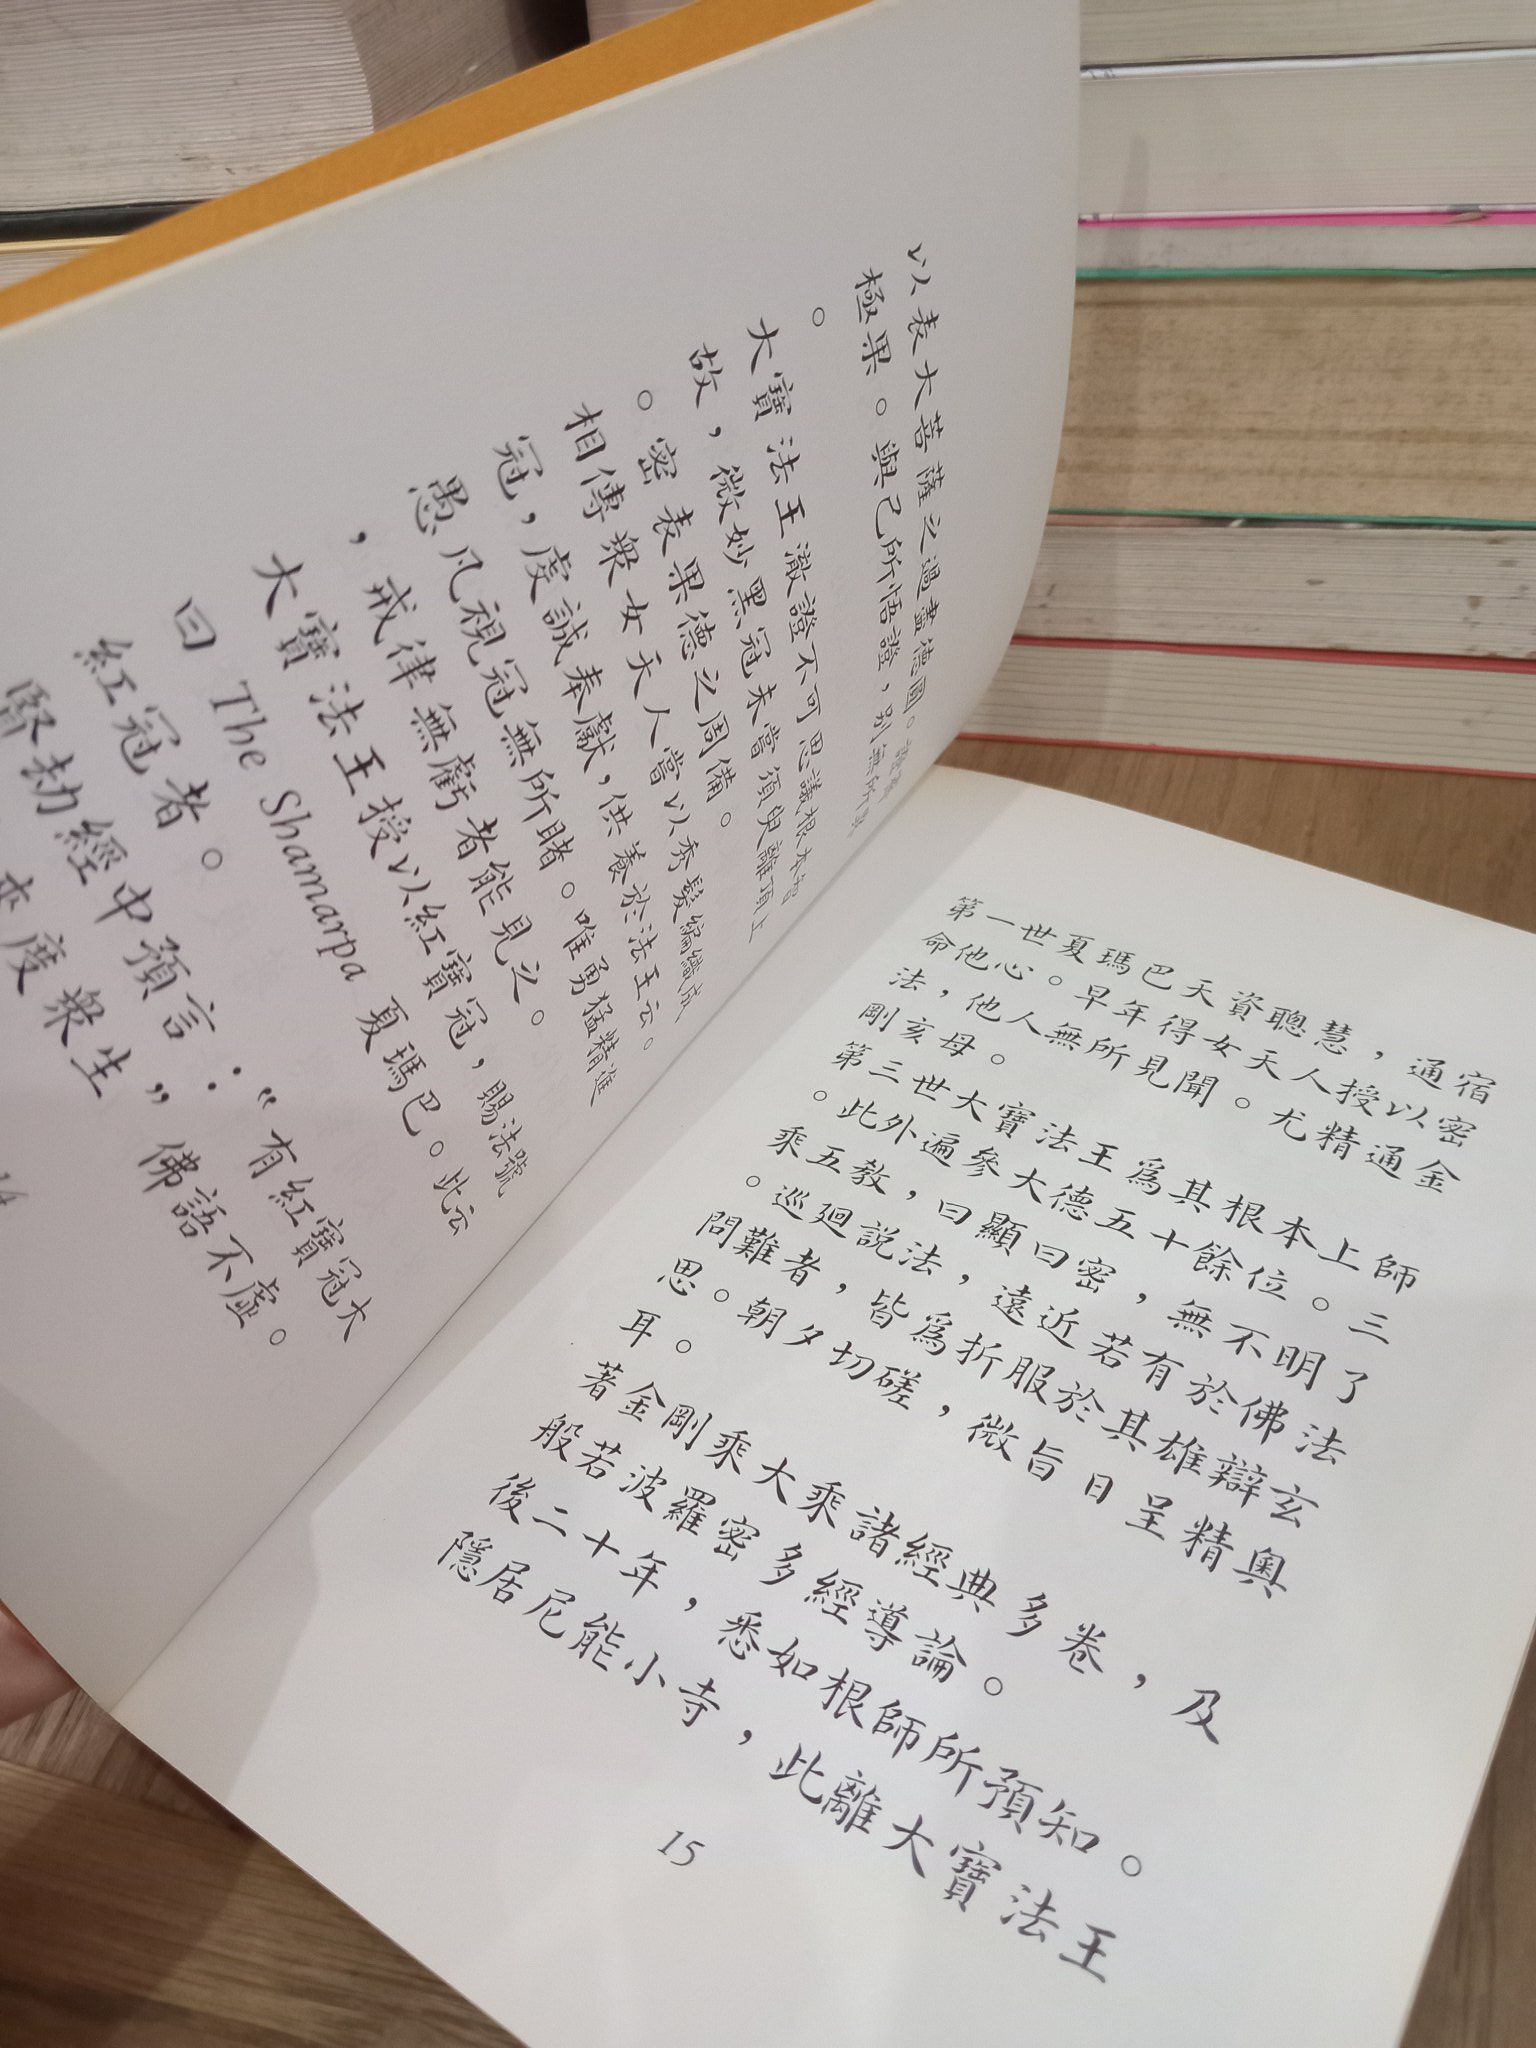 以表大菩薩之過盡德圓。
極果。與己所悟證，別無所
。
大寶法王澈證不可思議根本智
故，微妙黑冠未嘗須臾離頂上
。密表果德之周備。
相傳衆女天人嘗以秀髮編織成
冠，虔誠奉獻，供養於法王云。
愚凡視冠無所睹。唯勇猛精進
，戒律無虧者能見之。
大寶法王授以紅寶冠，賜法號
曰 The Shamarpa 夏瑪巴。此云
紅冠者。
賢劫經中預言：“有紅寶冠大
來度衆生”佛語不虛。
14
第一世夏瑪巴天資聰慧，通宿
命他心。早年得女天人授以密
法，他人無所見聞。尤精通金
剛亥母。
第三世大寶法王爲其根本上師
。此外遍參大德五十餘位。三
乘五教，曰顯曰密，無不明了
。巡迴説法，遠近若有於佛法
問難者，皆爲折服於其雄辯玄
思。朝夕切磋，微旨日呈精奥
耳。
著金剛乘大乘諸經典多卷，及
般若波羅密多經導論。
後二十年，悉如根師所預知。
隱居尼能小寺，此離大寶法王
15